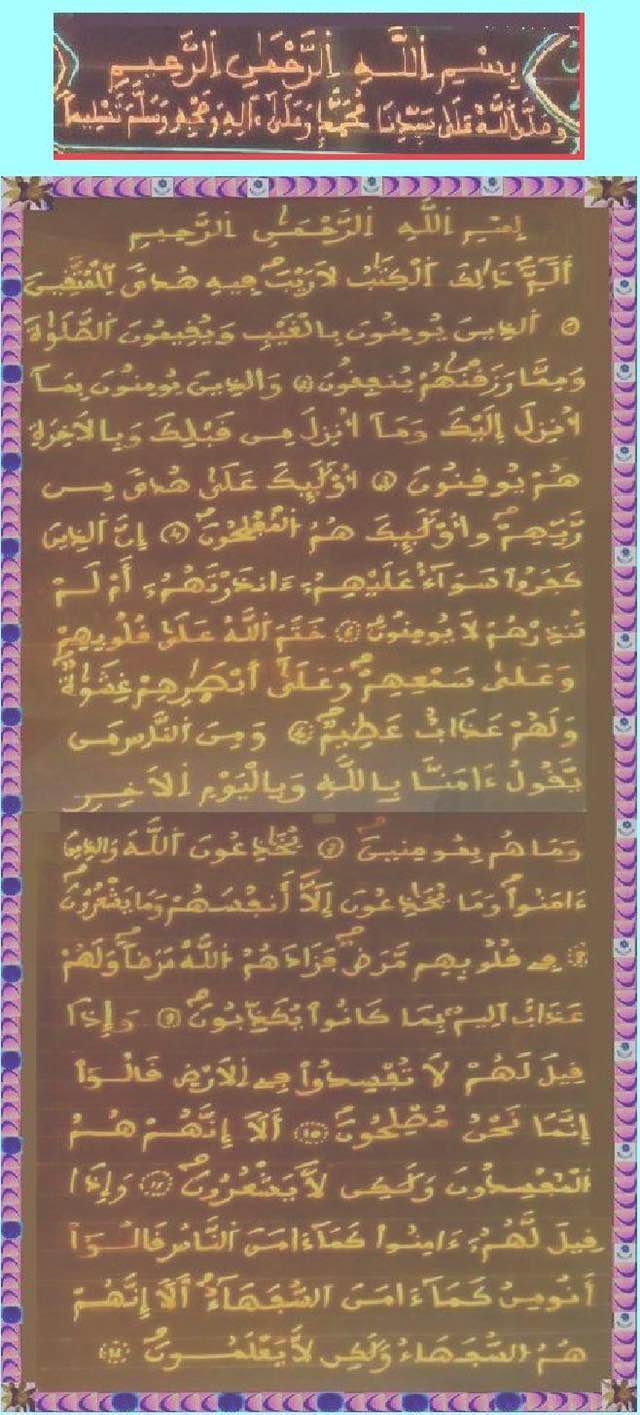 بِسْمِ اِ۬للَّهِ اِ۬لرَّحْمَٰنِ اِ۬لرَّحِيمِ
وَصَلَّى اَللَّهُ عَلَىٰ سَيِّدِنَا مُحَمَّدٍ وَعَلَىٰ ءَالِهِ وَصَحْبِهِ وَسَلَّمَ تَسْلِيماً
بِسْمِ اِ۬للَّهِ اِ۬لرَّحْمَٰنِ اِ۬لرَّحِيمِ
أَلَٓمِّٓۖ ذَٰلِكَ اَ۬لْكِتَٰبُ لَا رَيْبَۖ فِيهِ هُدىٗ لِّلْمُتَّقِينَ
١ اَ۬لذِينَ يُومِنُونَ بِالْغَيْبِ وَيُقِيمُونَ اَ۬لصَّلَوٰةَ
وَمِمَّا رَزَقْنَٰهُمْ يُنفِقُونَ ٢ وَالذِينَ يُومِنُونَ بِمَآ
أُنزِلَ إِلَيْكَ وَمَآ أُنزِلَ مِن قَبْلِكَ وَبِالَاخِرَةِ
هُمْ يُوقِنُونَ ٣ أُوْلَٰٓئِكَ عَلَىٰ هُدىٗ مِّن
رَّبِّهِمْۖ وَأُوْلَٰٓئِكَ هُمُ اُ۬لْمُفْلِحُونَۖ ٤ إِنَّ اَ۬لذِينَ
كَفَرُواْ سَوَآءٌ عَلَيْهِمُۥٓ ءَآنذَرْتَهُمُۥٓ أَمْ لَمْ
تُنذِرْهُمْ لَا يُومِنُونَۖ ٥ خَتَمَ اَ۬للَّهُ عَلَىٰ قُلُوبِهِمْ
وَعَلَىٰ سَمْعِهِمْۖ وَعَلَىٰٓ أَبْصَٰرِهِمْ غِشَٰوَةٞۖ
وَلَهُمْ عَذَابٌ عَظِيمٞۖ ٦ وَمِنَ اَ۬لنَّاسِ مَن
يَّقُولُ ءَامَنَّا بِاللَّهِ وَبِالْيَوْمِ اِ۬لَاخِرِ
وَمَا هُم بِمُومِنِينَۖ ٧ يُخَٰدِعُونَ اَ۬للَّهَ وَالذِينَ
ءَامَنُواْۖ وَمَا يُخَٰدِعُونَ إِلَّآ أَنفُسَهُمْ وَمَا يَشْعُرُونَۖ
٨ فِي قُلُوبِهِم مَّرَضٞۖ فَزَادَهُمُ اُ۬للَّهُ مَرَضاٗۖ وَلَهُمْ
عَذَابٌ اَلِيمُۢ بِمَا كَانُواْ يُكَذِّبُونَۖ ٩ وَإِذَا
قِيلَ لَهُمْ لَا تُفْسِدُواْ فِي اِ۬لَارْضِ قَالُوٓاْ
إِنَّمَا نَحْنُ مُصْلِحُونَۖ ١٠ أَلَآ إِنَّهُمْ هُمُ
اُ۬لْمُفْسِدُونَ وَلَٰكِن لَّا يَشْعُرُونَۖ ١١ وَإِذَا
قِيلَ لَهُمُۥٓ ءَامِنُواْ كَمَآ ءَامَنَ اَ۬لنَّاسُ قَالُوٓاْ
أَنُومِنُ كَمَآ ءَامَنَ اَ۬لسُّفَهَآءُۖ أَلَآ إِنَّهُمْ
هُمُ اُ۬لسُّفَهَآءُ وَلَٰكِن لَّا يَعْلَمُونَۖ ١٢